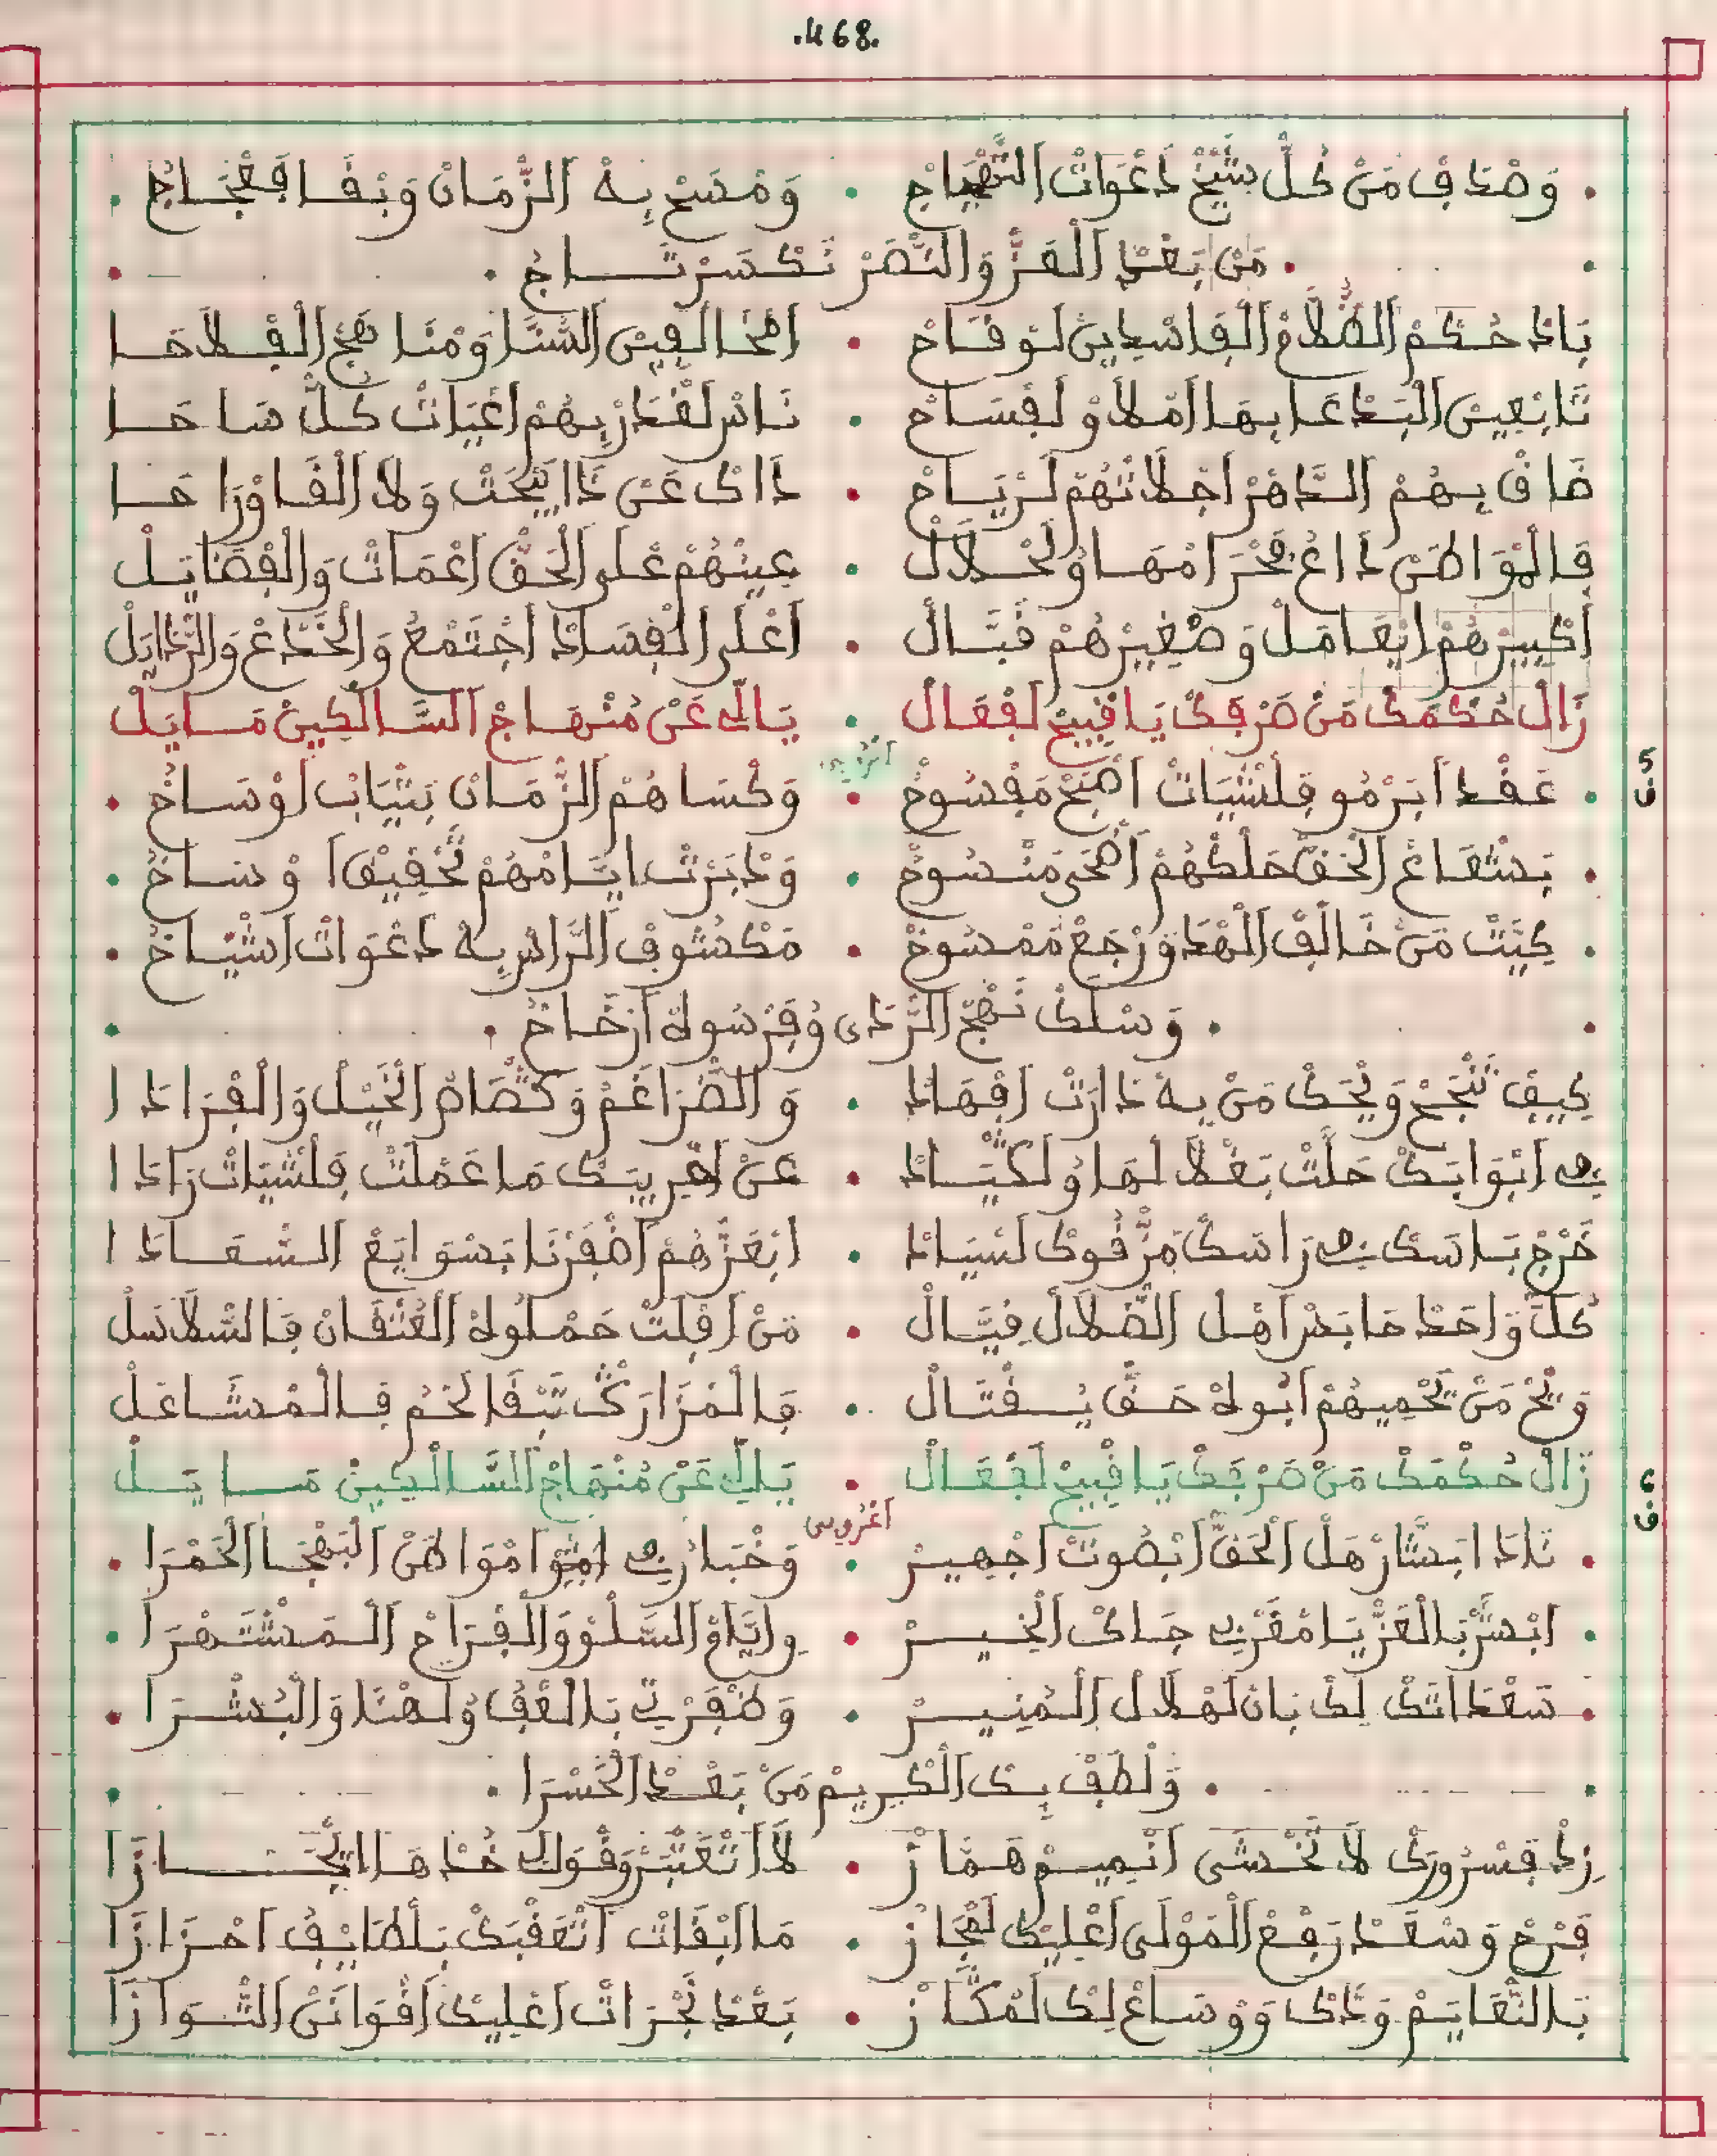 .468.
وَصْدَقْ مَنْ كُلّْ شِيخْ دَعْوَاتْ • وَمْسَحْ بِهْ اَلزّْمَانْ وَبْقَا
مَنْ بَعْدْ اَلْعَزّْ وَالنّْصَرْ تَكْسَرْ تَاجُ
بَادْ حُكْمْ اَلظُّلَّامْ اَلْفَاسْدِينْ لَوْقَاحْ • اَمْخَالْفِينْ اَلسُّنَّا وَمْنَاهَجْ اَلْفْلَاحَا
تَابْعِينْ اَلْبَدْعَا بِهَا اَمْلَاوْ لَفْسَاحْ • نَاسْ لَغْدَرْ بِهُمْ اَعْيَاتْ كُلّْ سَاحَا
ضَاقْ بِهُمْ اَلدَّهْرْ اَجْلَاتْهُمْ لَرْيَاحْ • ذَاكْ عَنْ ذَا يَبْحَتْ وَلَا اَلْقَاوْ رَاحَا
فَالْمْوَاطَنْ دَاعْ اَمْهَا وُلَحْلَالْ • عِينْهُمْ عْلَى اَلْحَقّْ اَعْمَاتْ وَالْفْضَايَلْ
اَكْبِيرْهُمْ اَيْعَامَلْ وَصْغِيرْهُمْ قَبَّالْ • اَعْلَى اَلْفْسَادْ اَجْتَمْعُ وَالْخْدَعْ وَالرّْذَايَلْ
زَالْ حُكْمَكْ مَنْ صَرْفَكْ يَا قْبِيحْ لَفْعَالْ • يَاللِّي عَنْ مُنْهَاجْ اَلسَّالْكِينْ مَايَلْ
5 ف
عَقْدْ اَبَرْمُو فِلَشْيَاتْ اَصْبَحْ مَفْسُوخْ • وَكْسَاهُمْ اَلزّْمَانْ بَتْيَابْ اَوْسَاخُ
اَلْحَقّْ حَلْكْهُمْ اَضْحَى مَنْسُوخْ • وَدْبَرْتْ اِيَّامْهُمْ تَحْقِيقْ اَوْسَاخُ
كِيَّتْ مَنْ خَالَفْ اَلْهْدَى وَرْجَعْ مَمْسُوخْ • مَكْشُوفْ اَلرَّاسْ بِهْ دَعْوَاتْ اَشْيَاخُ
وَسْلَكْ نَهْجْ اَلرّْدَى وُفَرْسُولَهْ اَرْخَاخُ
كِيفْ تَنْجَحْ وَيْحَكْ مَنْ بِهْ دَارَتْ اَفْهَادْ • وَالضّْرَاغَمْ وَ اَلْخَيْلْ وَالْقْرَادَا
فِي اَبْوَابَكْ حَلَّتْ بَغْلَالْهَا وُلَكْيَادْ • عَنْ مَا عَمْلَتْ فِلَشْيَاتْ رَادَا
خْرَجْ بَاسَكْ فِي رَاسَكْ مَزّْقُوكْ لَسْيَادْ • اَبْعَزّْهُمْ اَضْفَرْنَا بَسْوَايَعْ اَلسّْعَادَا
كُلّْ وَاحَدْ حَابَسْ اَهْلْ اَلضّْلَالْ فِيَّالْ • مَنْ اَفْلَتْ حَمْلُولَهْ اَلْعُتْقَانْ فَالسّْلَاسَلْ
وَيْحْ مَنْ يَحْمِيهُمْ اَبُولَهْ حَقّْ يُقْتَالْ • فَالْمْزَارَكْ تَبْقَا لَحْمُ فَالْمْشَاعَلْ
زَالْ حُكْمَكْ مَنْ صَرْفَكْ يَا قْبِيحْ لَفْعَالْ • يَاللِّي عَنْ مُنْهَاجْ اَلسَّالْكِينْ مَايَلْ
6 ف
نَادَا اَبَشَّارْ هَلْ اَلْحَقّْ اَبْصُوتْ اَجْهِيرْ • وَخْبَارِي اَمْوَاطَنْ اَلْبَهْجَا اَلْحَمْرَا
اَبْشَرْ بَالْعَزّْ يَا مْغَرْبِي جَاكْ اَلْخِيرْ • وِايَّامْ اَلسَّلْوْ وَالْفْرَاحْ اَلْمَشْتَهْرَا
سَعْدَاتَكْ لِكْ بَانْ لَهْلَالْ اَلْمُنِيرْ • وَظْفَرْتِي بَالْعْفُو وُلَهْنَا وَالْبُشْرَا
وَلْطَفْ بِكْ اَلْكْرِيمْ مَنْ بَعْدْ اَلْخَسْرَا
زِدْ فَسْرُورَكْ لَا تَخْشَى اَنْمِيمْ هَمَّازْ • لَا اَتْغَيَّرْ وَقْوَالِي خُدْهَا
فْرَحْ وَسْعَدْ رَفْعْ اَلْمَوْلَى اَعْلِيكْ • مَا اَبْقَاتْ اَتْعَقْبَكْ بَلْطَايَفْ اَحْرَازَا
بَالنّْعَايَمْ وَدَّكْ وَوْسَاعْ لِكْ لَمْكَازْ • بَعْدْ اَعْلِيكْ اَقْوَاتَنْ